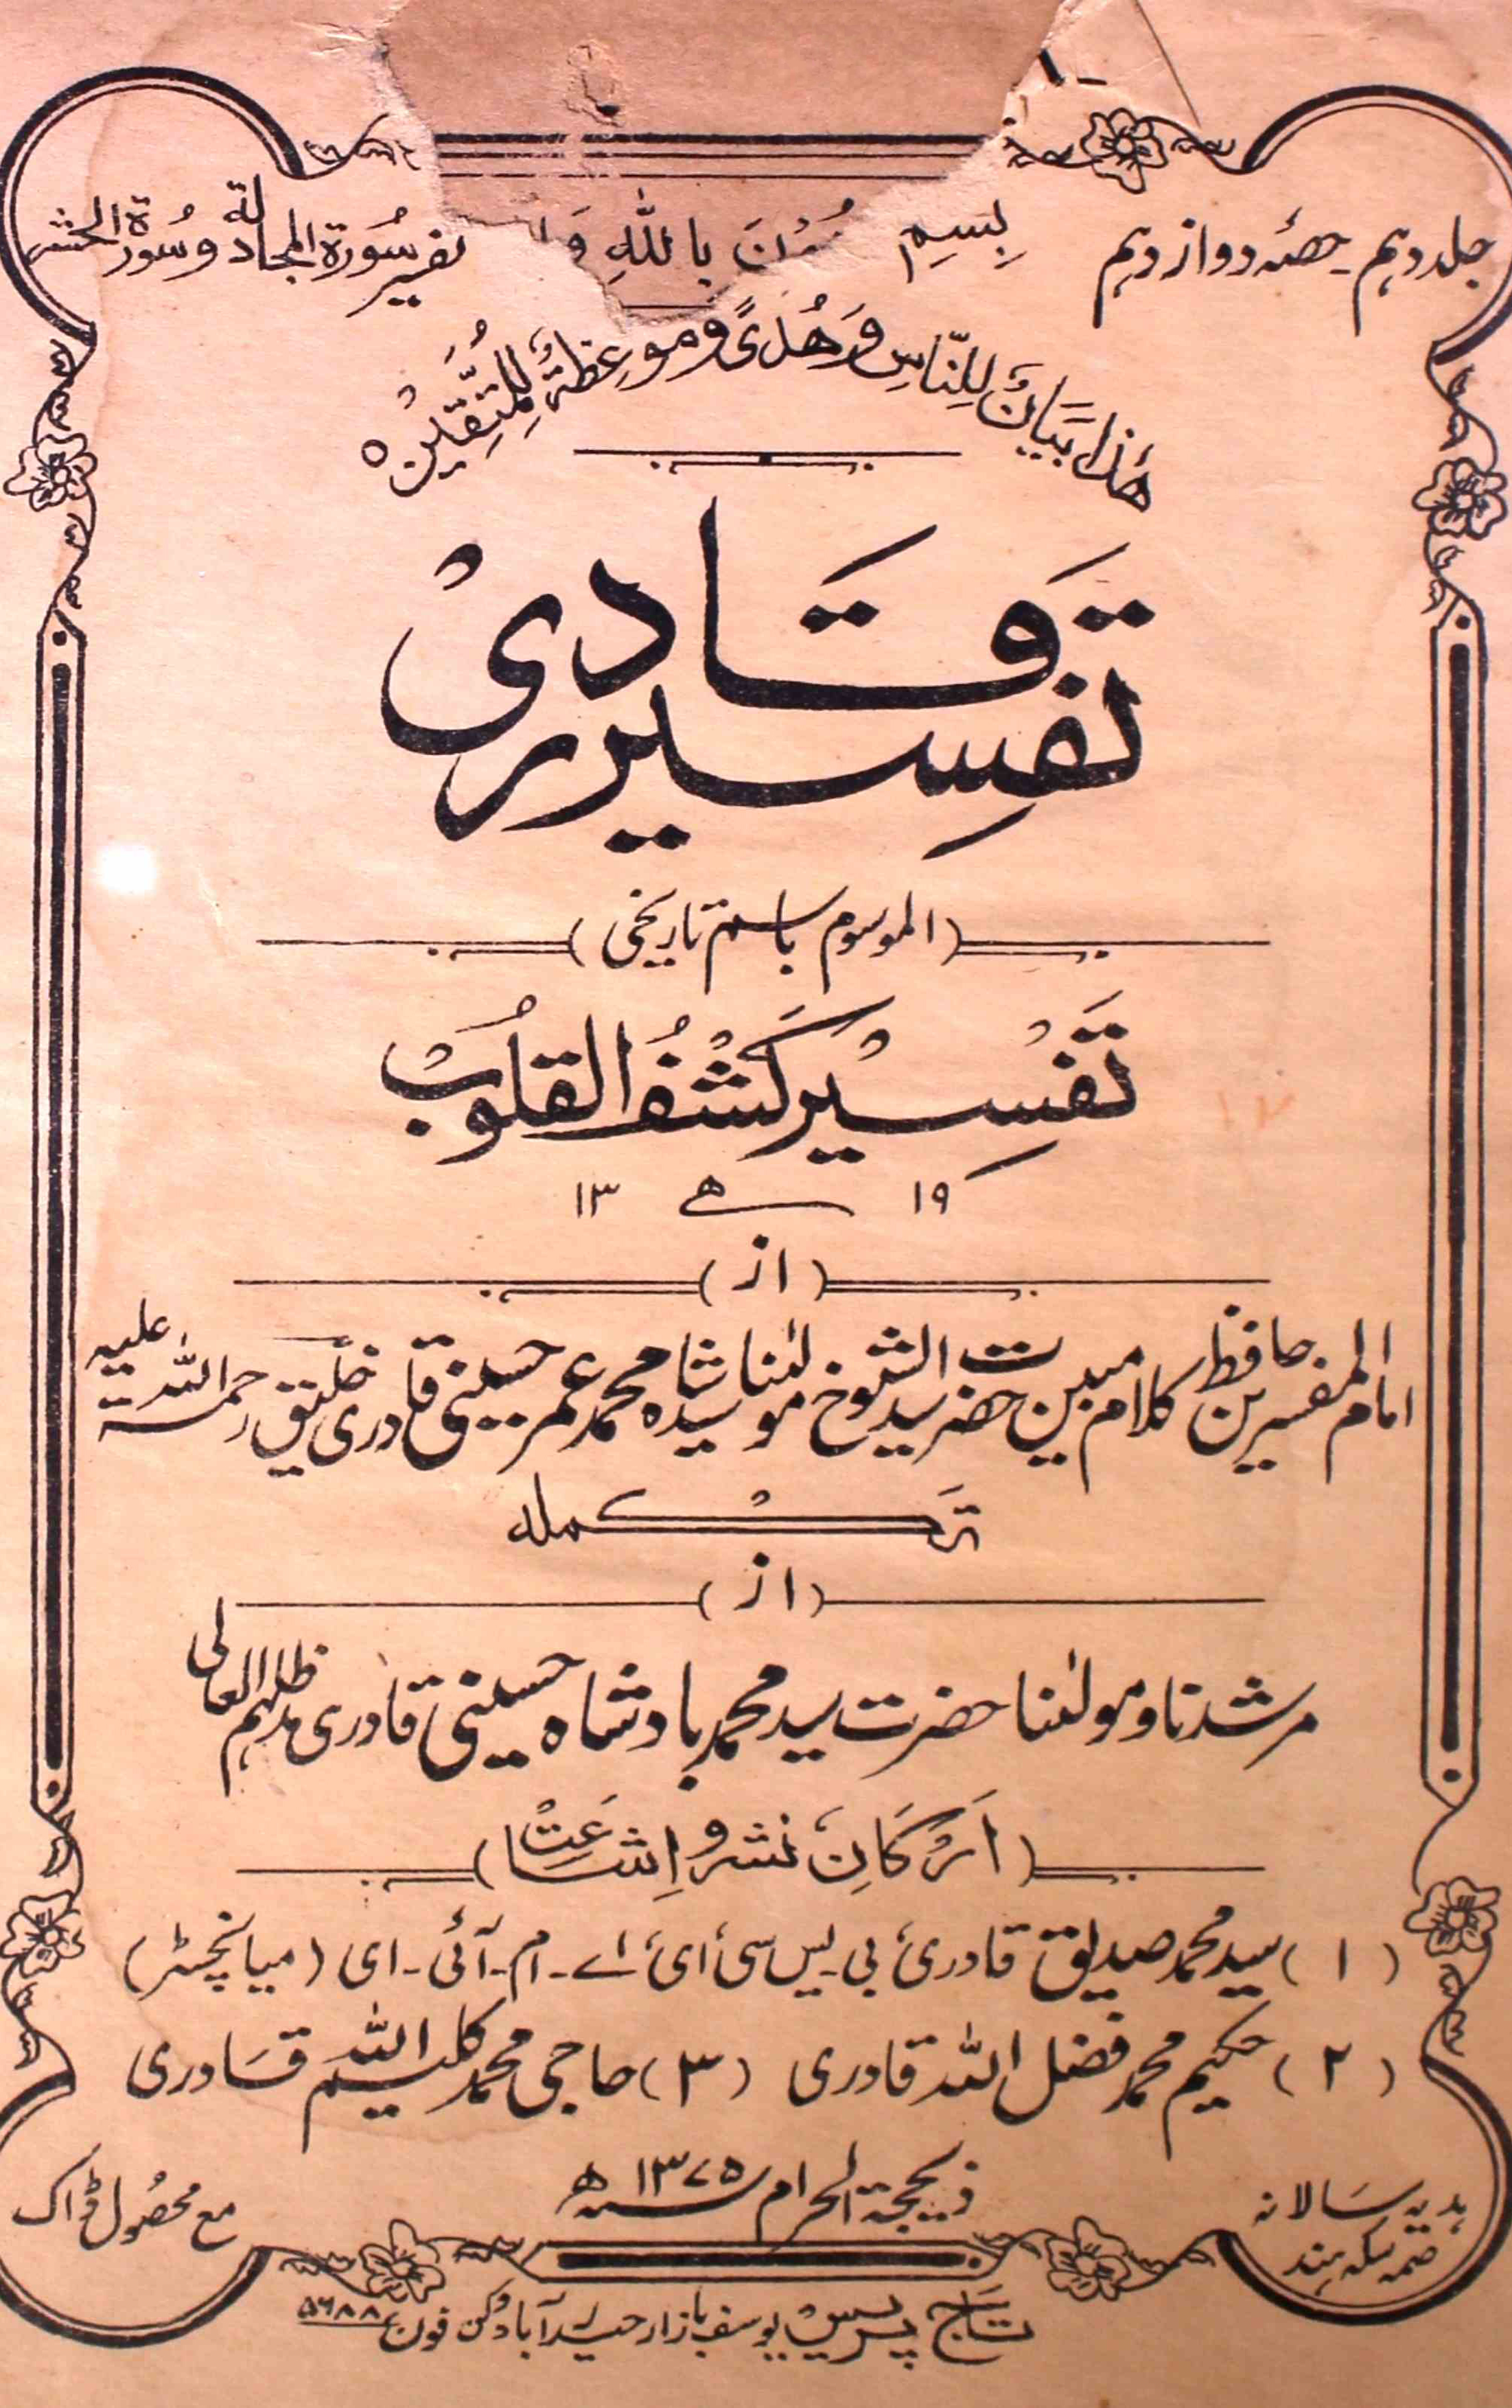 جلد دہم۔ حصّہ دوازدہم
بِسْمِ
بِاللّٰهِ
تفسیر سُورۃ المجادلۃ و سُورۃ الحشر
هٰذَا بَيَانٌ لِّلنَّاسِ وَهُدًى وَّمَوْعِظَةٌ لِّلْمُتَّقِيْنَ ہ
تَفْسِیْرِ قَادِرِیْ
(الموسوم باسم تاریخی)
تَفْسِیْر کَشْفُ الْقُلُوْبْ
۱۹ ھ ۱۳
(از)
امام المفسرین حافظ کلام مبین حضرت سید الشیوخ مولٰنا سید شاہ محمد عمر حسینی قادری خلیق رحمۃ اللہ علیہ
تَکْملہ
(از)
مرشدنا و مولٰنا حضرت سید محمد بادشاہ حسینی قادری مدظلہم العالی
(اَرْکَانِ نشر و اِشَاعَتْ)
(۱) سید محمد صدیق قادری بی۔یس سی ای اے۔ ام۔ آئی۔ ای (میانچسٹر)
(۲) حکیم محمد فضل اللہ قادری (۳) حاجی محمد کلیم اللہ قَادری
ذیحجۃ الحرام ۱۳۷۵ھ
ہدیہ سَالانہ
سکہ ہند
مع محصُول ڈاک
تاج پریس یوسف بازار حیدرآباد دکن فون ۵۶۸۸